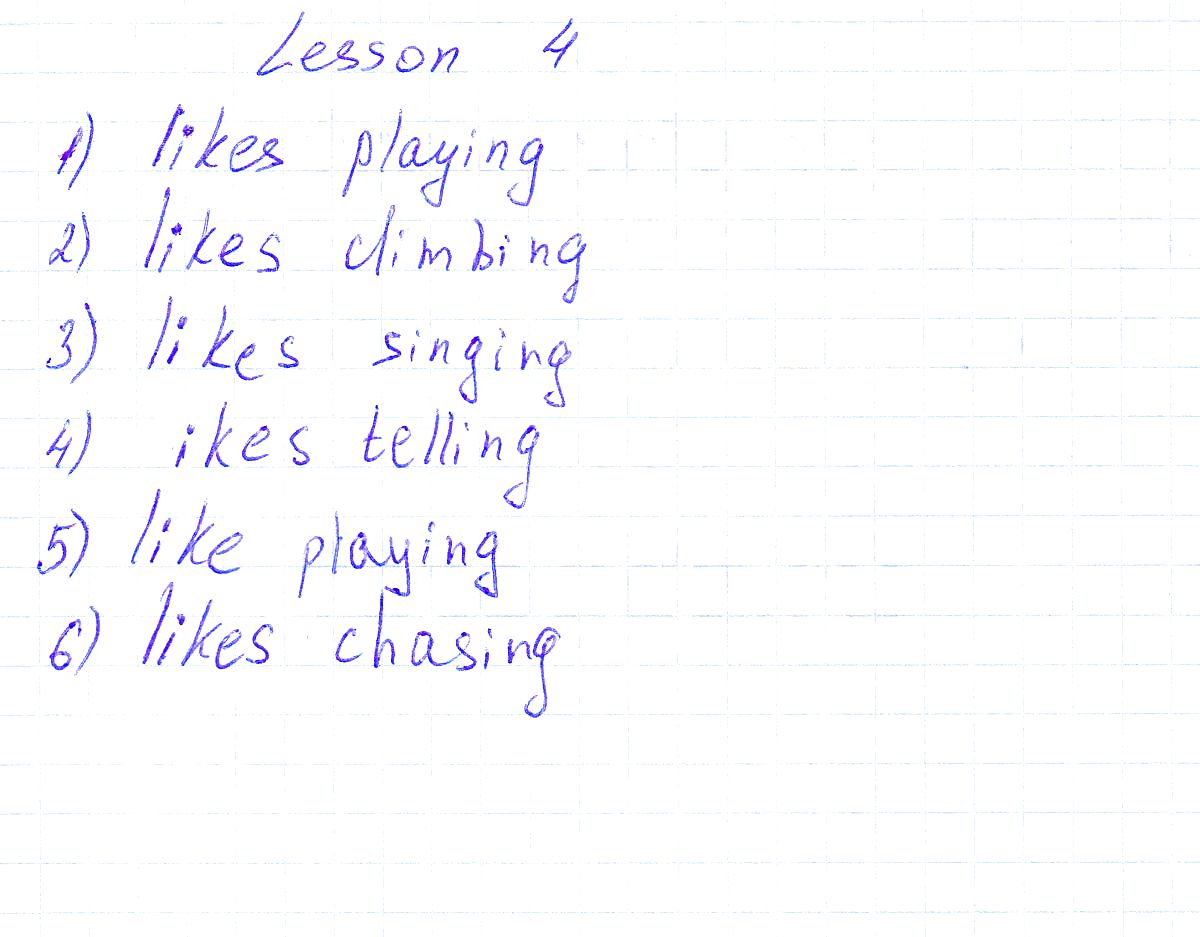 Lesson 4
1) likes playing
2) likes climbing
3) likes singing
4) ikes telling
5) like playing
6) likes chasing